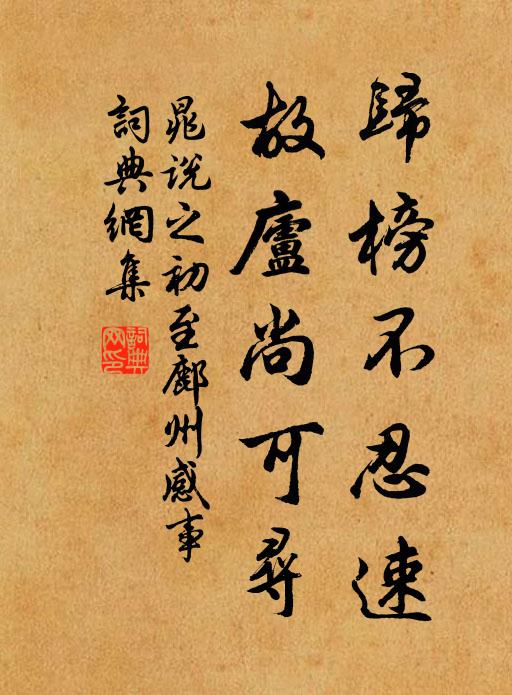 歸榜不忍速
故廬尚可尋
晁說之初至鄜州感事
詞典網集
詞典网印